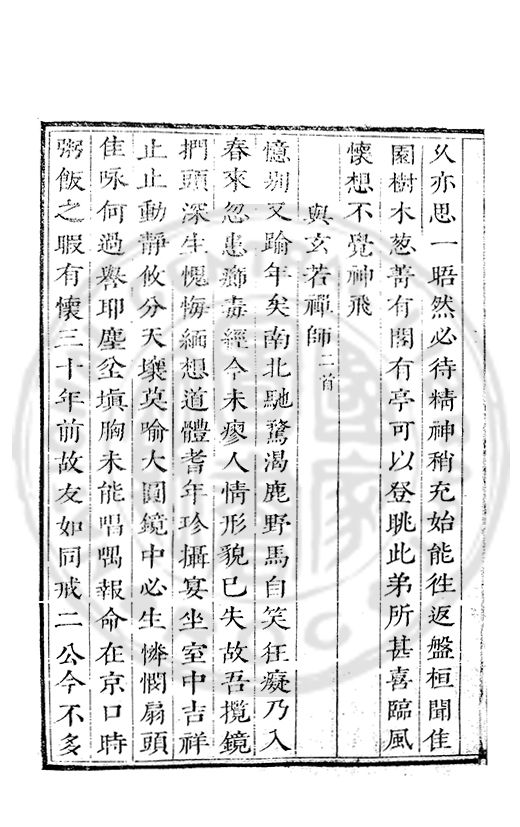 乆亦思一晤然必待精神稍充始能徃返盤桓聞佳
園樹木葱蒨有閣有亭可以登眺此弟所甚喜臨風
懷想不覺神飛
與玄若禪師二首
憶别又踰年矣南北馳驚渴鹿野馬自笑狂癡乃入
春來忽患瘵毒經今未瘳人情形貌已失故吾攬鏡
捫頭深生愧悔緬想道體耆年珍攝宴坐室中吉祥
止止動靜攸分天壤莫喻大圓鏡中必生憐憫扇頭
佳咏何過譽耶塵坌塡胸未能唱喁報命在京口時
粥飯之暇有懷三十年前故友如同戒二公今不多